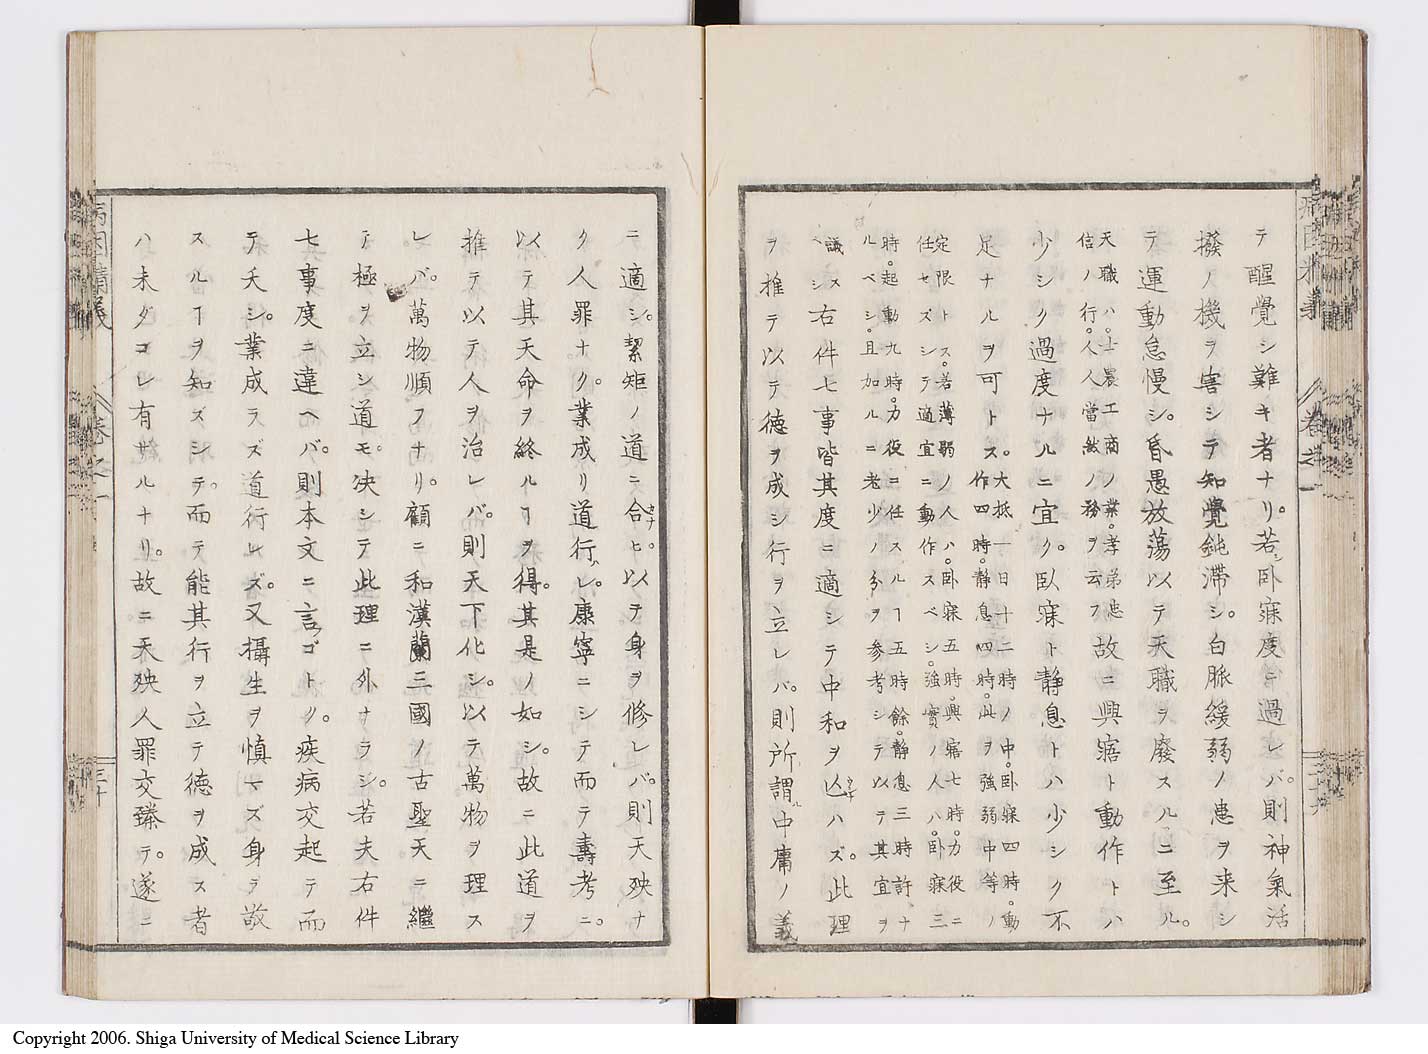 テ醒覺シ難キ者ナリ。若シ臥寐度ニ過レバ。則神氣活
撥ノ機ヲ害シテ知覺鈍滞シ。白脈緩弱ノ患ヲ来シ
テ運動怠慢シ。昏愚放蕩以テ天職ヲ廢スルニ至ル。
天職ハ。士農工商ノ業。孝弟忠
信ノ行。人人當然ノ務ヲ云フ
故ニ興寤ト動作トハ
少シク過度ナルニ宜ク。臥寐ト静息トハ少シク不
足ナルヲ可トス。
大抵一日十二時ノ中。臥寐四時。動
作四時。静息四時。此ヲ強弱中等ノ
定限トス。若薄弱ノ人ハ。臥寐五時。興寤七時。力役ニ
任セズシテ適宜ニ動作スベシ。強實ノ人ハ。臥寐三
時。起動九時。力役ニ任スルヿ五時餘。静息三時許ナ
ルベシ。且加ルニ老少ノ分ヲ参考シテ以テ其宜ヲ
議ス
ベシ
右件七事皆其度ニ適シテ中和ヲ亾ハズ。此理
ヲ推テ以テ徳ヲ成シ行ヲ立レバ。則所謂中庸ノ義
ニ適シ。絜矩ノ道ニ合ヒ。以テ身ヲ修レバ。則天殃ナ
ク人罪ナク。業成リ道行レ。康寧ニシテ而テ壽考ニ。
以テ其天命ヲ終ルヿヲ得。其是ノ如シ。故ニ此道ヲ
推テ以テ人ヲ治レバ。則天下化シ。以テ萬物ヲ理ス
レバ。萬物順フナリ。顧ニ和漢蘭三國ノ古聖天ニ繼
テ極ヲ立シ道モ。决シテ此理ニ外ナラジ。若夫右件
七事度ニ違ヘバ。則本文ニ言ゴトク。疾病交起テ而
テ夭シ。業成ラズ道行レズ。又攝生ヲ慎マズ身ヲ敬
スルヿヲ知ズシテ。而テ能其行ヲ立テ徳ヲ成ス者
ハ未ダコレ有ザルナリ。故ニ天殃人罪交臻テ。遂ニ
病因精義
卷之一
三十
Copyright 2006. Shiga University of Medical Science Library